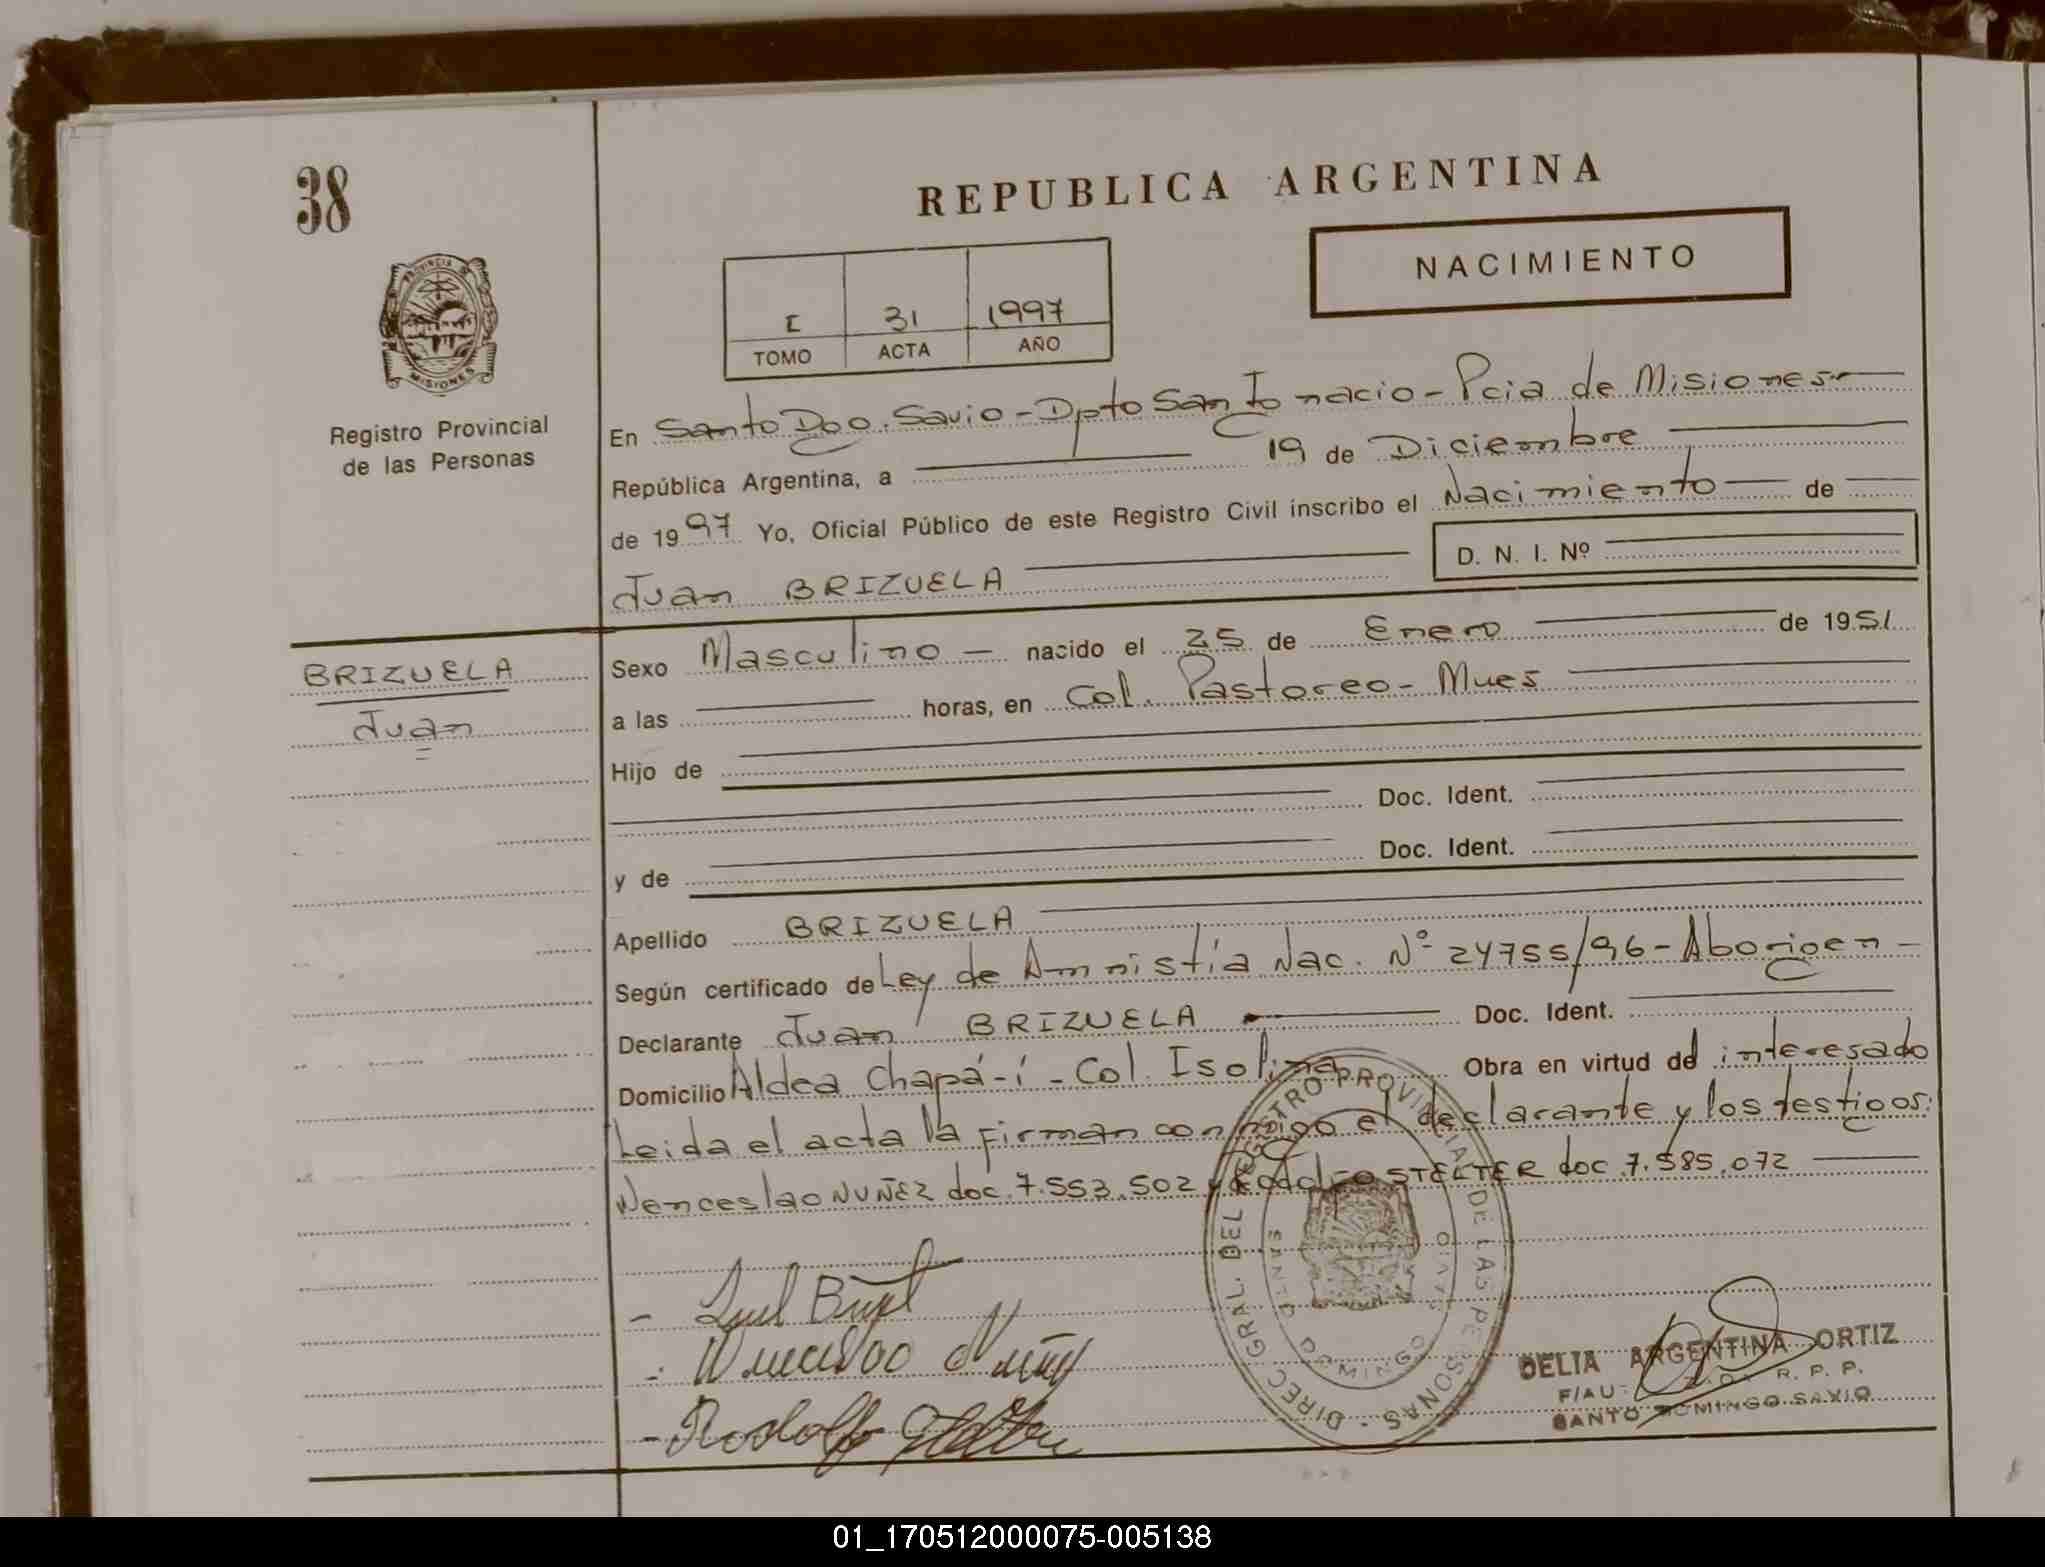 38
REPUBLICA ARGENTINA
NACIMIENTO
I 31 1997
TOMO ACTA AÑO
PROVINCIA
MISIONES
Registro Provincial
de las Personas
En Santo Dgo. Savio - Dpto San Ignacio - Pcia de Misiones
República Argentina, a 19 de Diciembre
de 1997 Yo, Oficial Público de este Registro Civil inscribo el Nacimiento de
Juan BRIZUELA D. N. I. Nº
BRIZUELA
Juan
Sexo Masculino nacido el 25 de Enero de 1951
a las horas, en Col. Pastoreo - Mnes
Hijo de
Doc. Ident.
y de Doc. Ident.
Apellido BRIZUELA
Según certificado de Ley de Amnistía Nac. Nº 24755/96 - Aborigen -
Declarante Juan BRIZUELA Doc. Ident.
Domicilio Aldea Chapá-í - Col. Isolina Obra en virtud del interesado
Leida el acta la firman conmigo el declarante y los testigos:
Wenceslao NUÑEZ doc. 7.553.502 y Rodolfo STELTER doc 7.585.072
DIREC. GRAL. DEL REGISTRO PROVINCIAL DE LAS PERSONAS -
SANTO DOMINGO SAVIO
DELIA ARGENTINA ORTIZ
R. P. P.
SANTO DOMINGO SAVIO
01_170512000075-005138